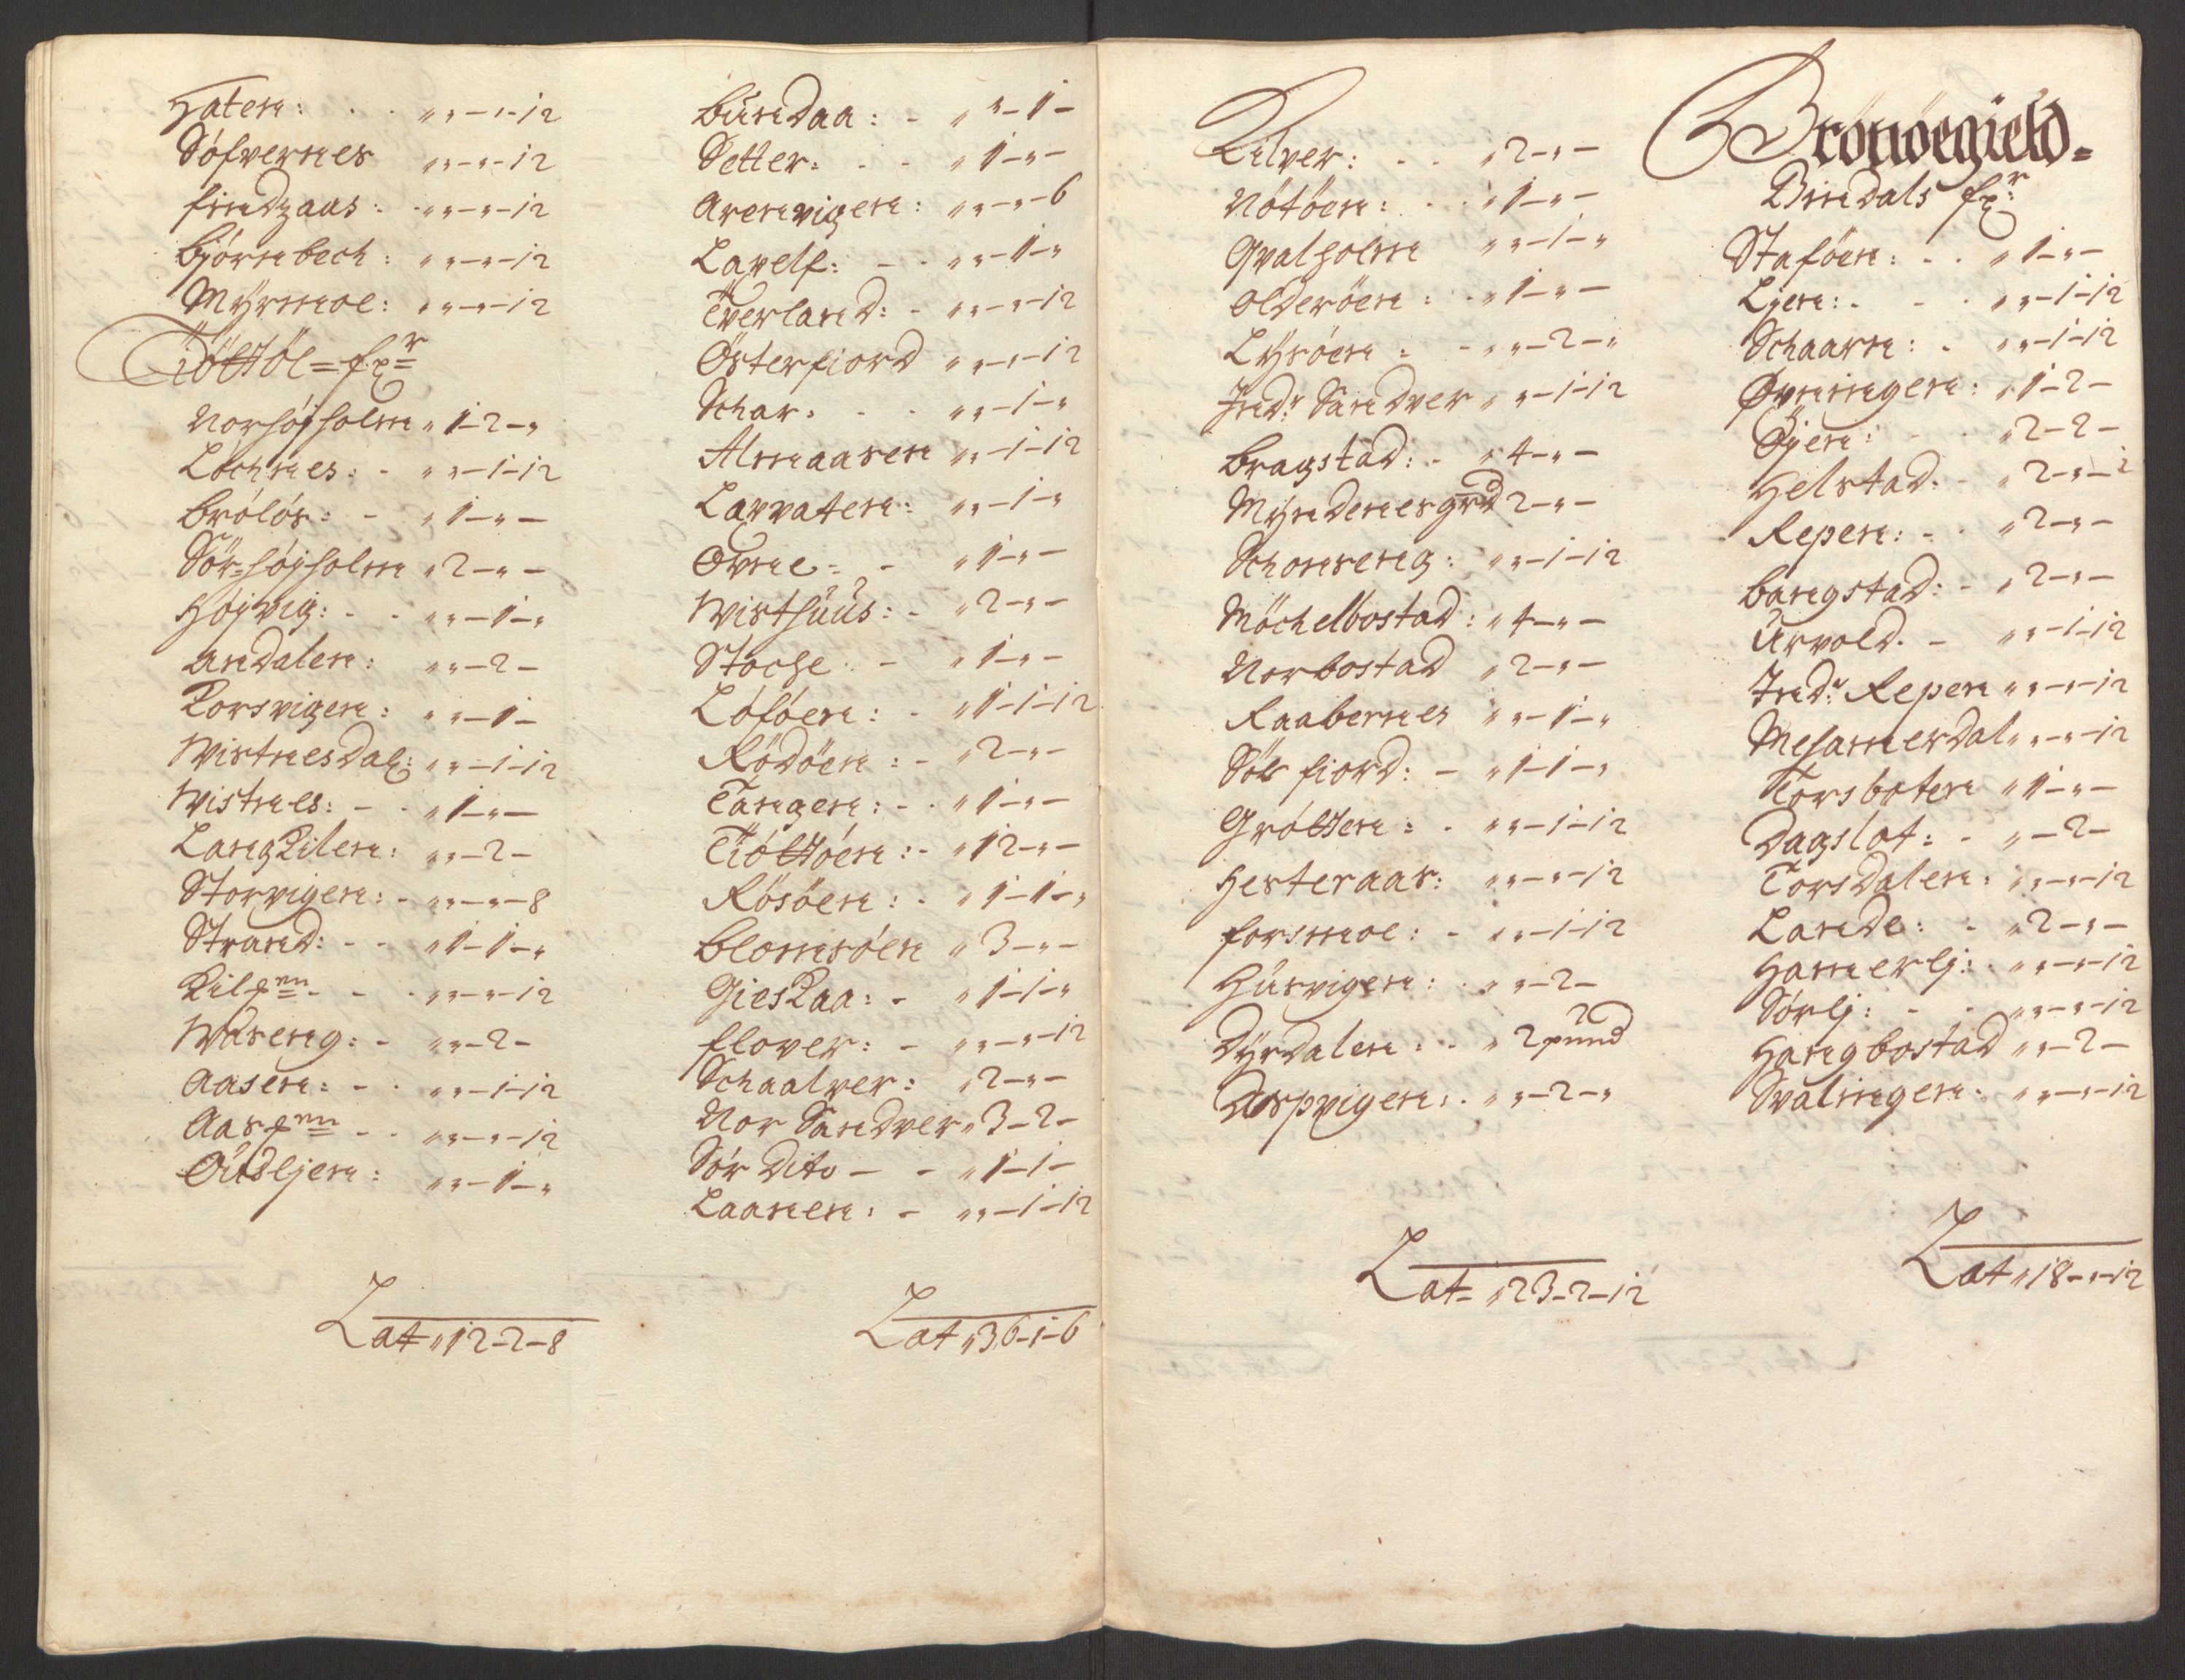 Haten: . . „ „ - „ - 12
Söfvernes „ „ - „ - 12
findzaas: „ „ - „ - 12
Björnbech: „ „ - „ - 12
Myrmoe: „ „ - „ - 12
Tiöttöe = fr:
Norhøjholm „ 1 - 2 - „
Lochnes: - „ „ - 1 - 12
Brölös: - „ 1 - „ -
Sör=højholm „ 2 - „ -
Højvig: - - „ „ - 1 - „
andalen: „ „ - 2 -
Korsvigen: „ „ - 1 -
Wistnesdal: „ „ - 1 - 12
Wistnes: - - „ 1 - „ -
Langkilen: „ „ - 2 -
Storvigen: - „ „ - „ - 8
Strand: - - „ 1 - 1 - „
Kilen - - „ „ - „ - 12
Waseng: - „ „ - 2 -
Aasen: - - „ „ - 1 - 12
„ „ - „ - 12
Oüdljen: „ „ - 1 - „
Lat „ 12 - 2 - 8
Bundaa: - „ „ - 1 -
Setter: - - „ 1 - „ -
Arenvigen: „ „ - „ - 6
Lavelf: - - „ „ - 1 - „
Tverland: - „ „ - „ - 12
Österfiord „ „ - „ - 12
Schar: - - „ „ - 1 - „
Almaasen „ „ - 1 - 12
Lavvaten: „ „ - 1 - „
Ovne: - „ 1 - „ -
Wisthüüs: - „ 2 - „ -
Stoche: - „ 1 - „ -
Löföen: - „ 1 - 1 - 12
Rödöen: - „ 2 - „ -
Tangen: - - „ 1 - „ -
Tiöttöen: - „ 12 - „ -
Rösöen: - „ 1 - 1 - „
Blomsöen „ 3 - „ -
Gieskaa: - „ 1 - 1 - „
flover: - „ „ - „ - 12
Schaalver: „ 2 - „ -
Nor Sandver „ 3 - 2 -
Sör Dito - - „ 1 - 1 -
Laanen: - „ „ - 1 - 12
Lat „ 36 - 1 - 6
Kilver: - - „ 2 - „ -
Nötöen: - - „ 1 - „ -
Qvalholm „ „ - 1 - „
Olderöen: - „ 1 - „ -
Lysöen: - „ „ - 2 - „
Indr Sandver „ „ - 1 - 12
Bragstad: - „ 4 - „ -
Myndenesgrd 2 - „ -
Schonseng: „ „ - 1 - 12
Möchelbostad: „ 4 - „ -
Norbostad „ 2 - „ -
Raabernes „ „ - 1 - „
Sör fiord: - „ 1 - 1 - „
Gröttem: - „ „ - 1 - 12
Hesteraas: „ „ - „ - 12
forsmoe: - „ „ - 1 - 12
Hüsvigen: „ „ - 2 -
Dyrdalen: - „ 2 pund
Aspvigen: - „ „ - 2 - „
Lat - „ 23 - 2 - 12
Brönöegield=
Bindals fr:
Staföen: - - „ 1 - „ -
Ljen: - - - „ „ - 1 - 12
Schaarn: - „ „ - 1 - 12
Øvningen: „ 1 - 2 -
Öyen: - - „ 2 - 2 -
Helstad: - „ 2 - „ - 1
Repen: - - „ 2 - „ -
Bangstad: - „ 2 - „ -
Ürvold. - „ „ - 1 - 12
Indr Repen „ „ - „ - 12
Mesamerdal „ „ - „ - 12
Torsboten „ 1 - „ -
Dagslot: - „ - 2 -
Torsdalen: „ „ - „ - 12
Lande: - „ 2 - „ -
Hamerlj: - „ „ - „ - 12
Sörlj: - - „ „ - „ - 12
Hangbostad „ „ - 2 -
Svalmgen: „ „ - „ - 12
Lat „ 18 - „ - 12